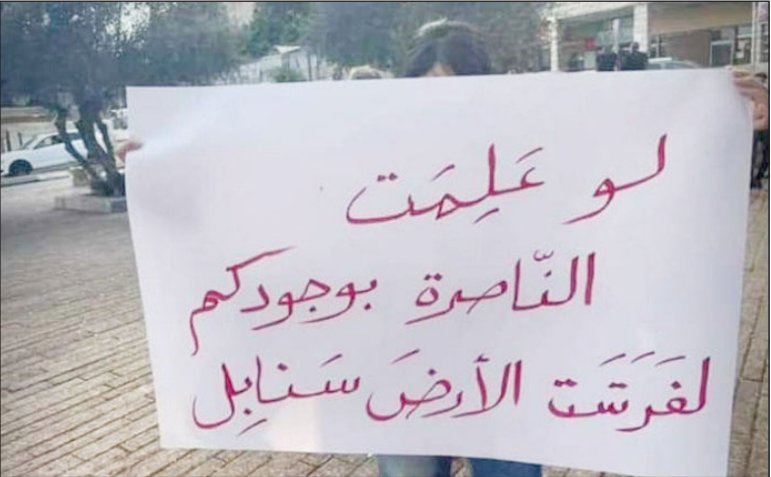 لو عَلِمَت
النّاصرة بوجودكم
لفَرَشَت الأرضَ سَنابِل